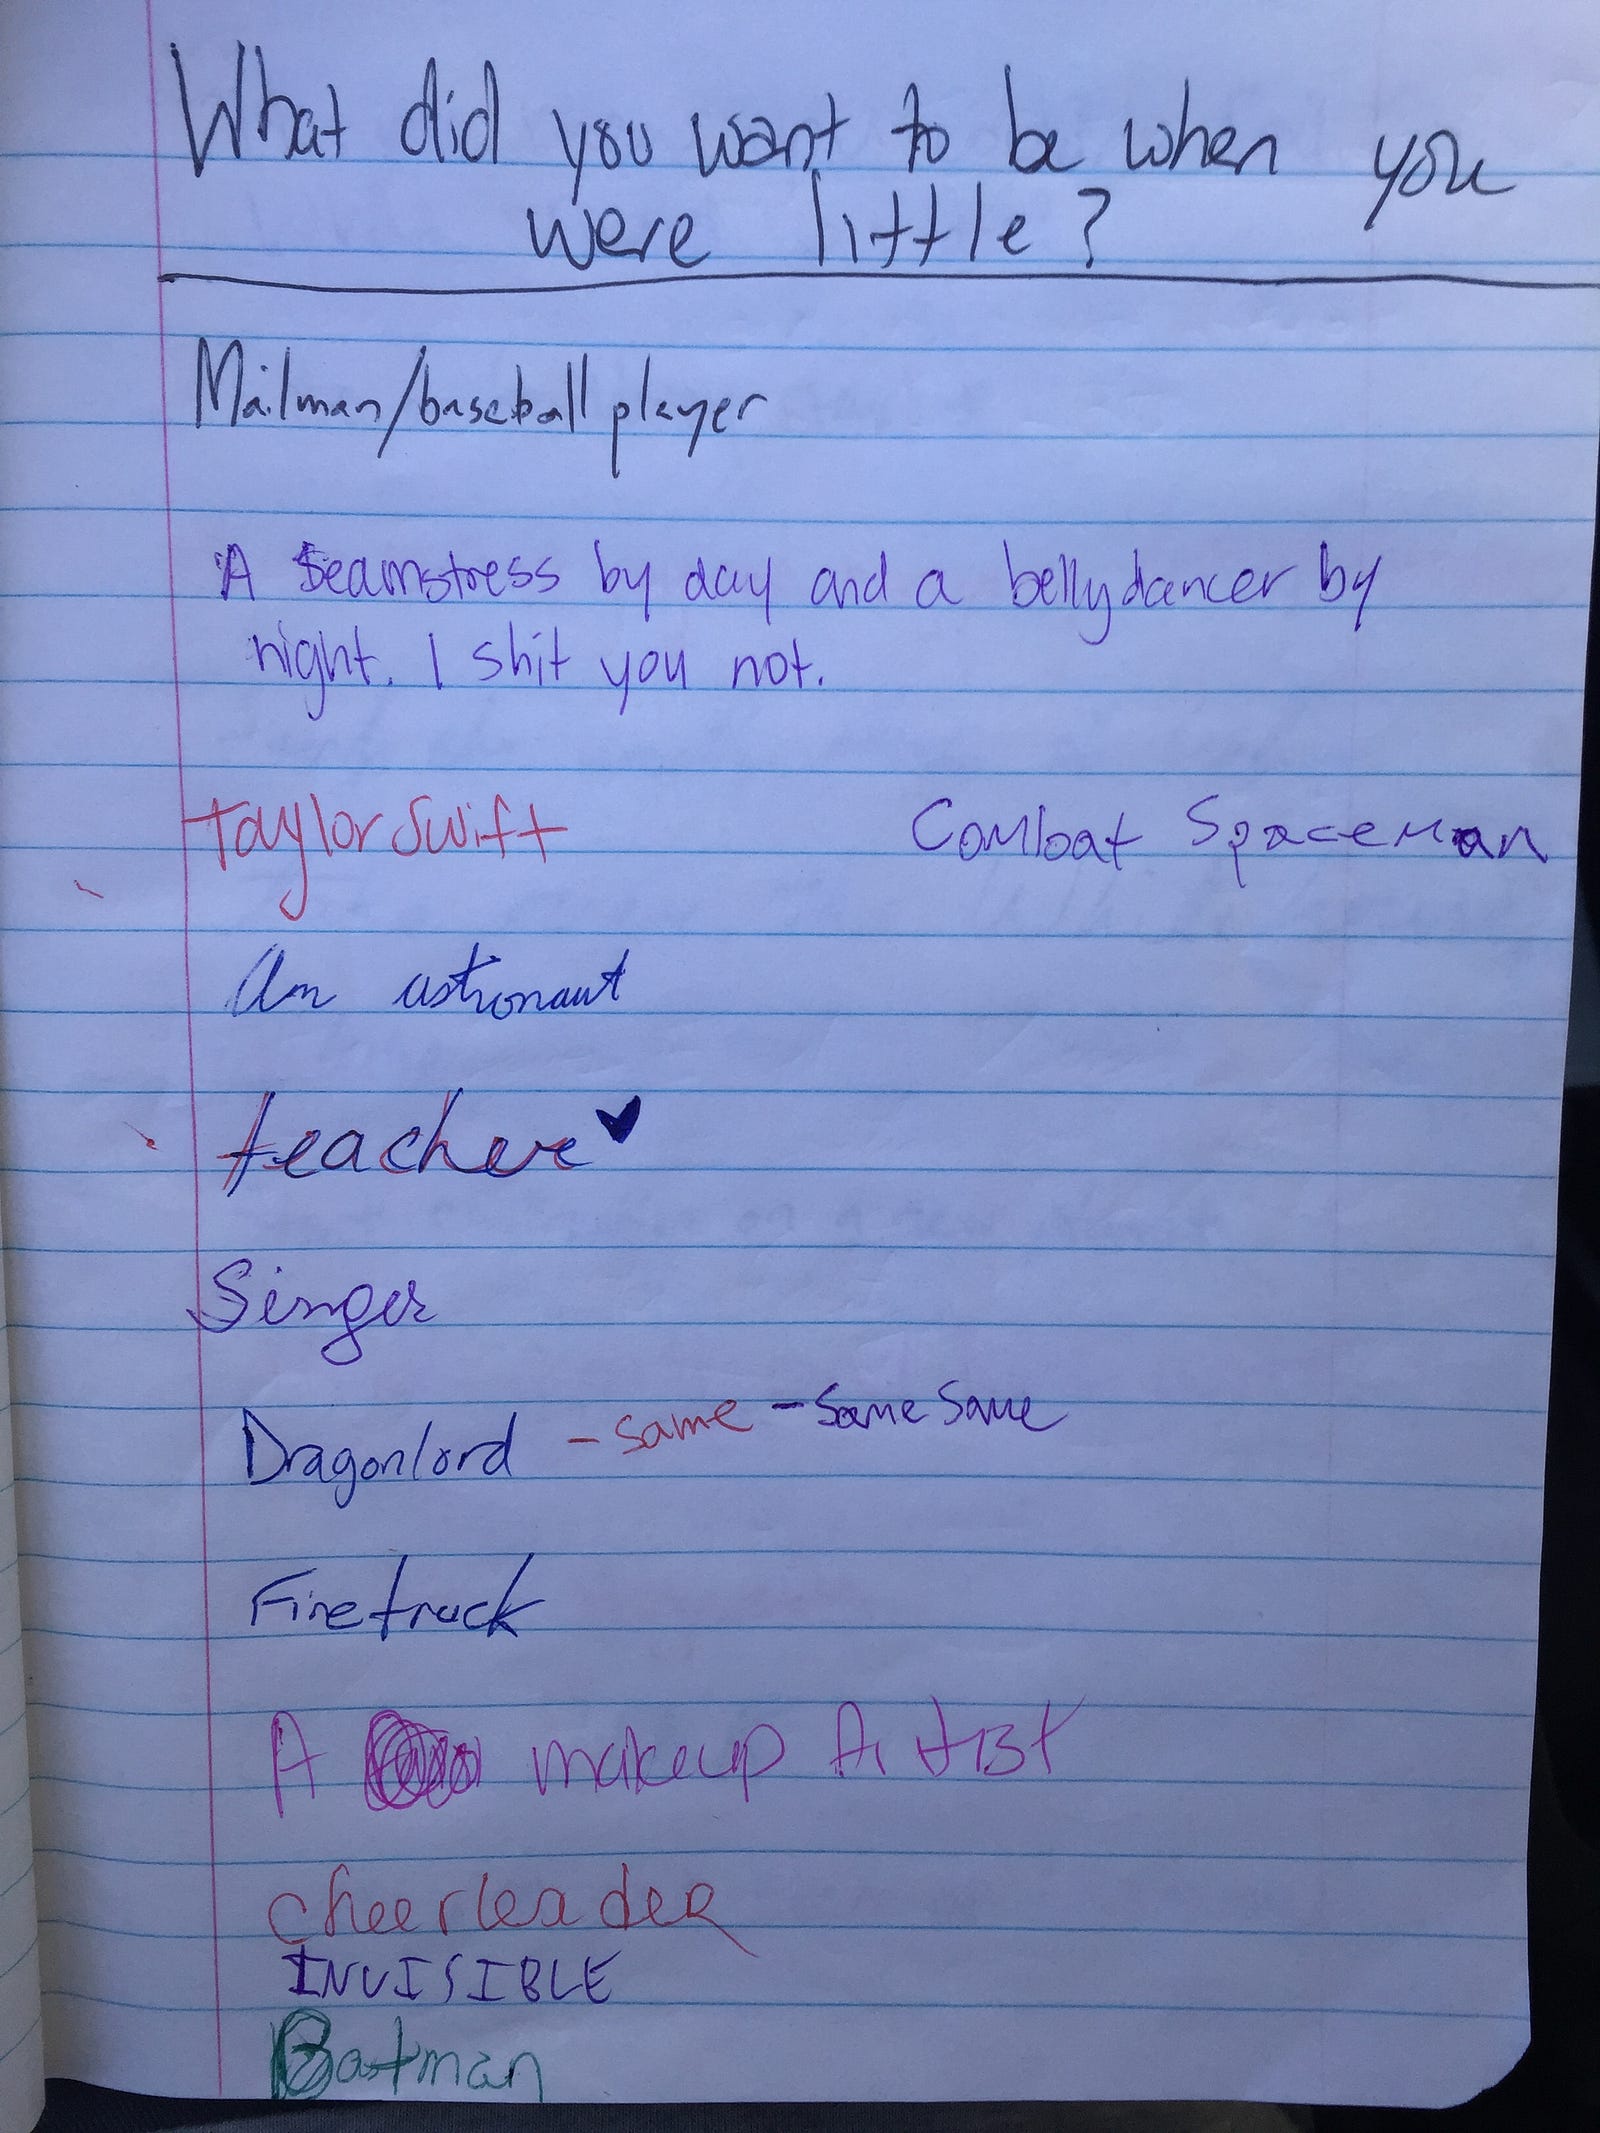 What did you want to be when you
were little?
Mailman/baseball player
A Seamstress by day and a bellydancer by
night. I shit you not.
Taylor Swift
Combat Spaceman
An astronaut
teacher
Singer
Dragonlord - same - Same Same
Firetruck
A makeup Artist
cheerleadeR
INVISIBLE
Batman